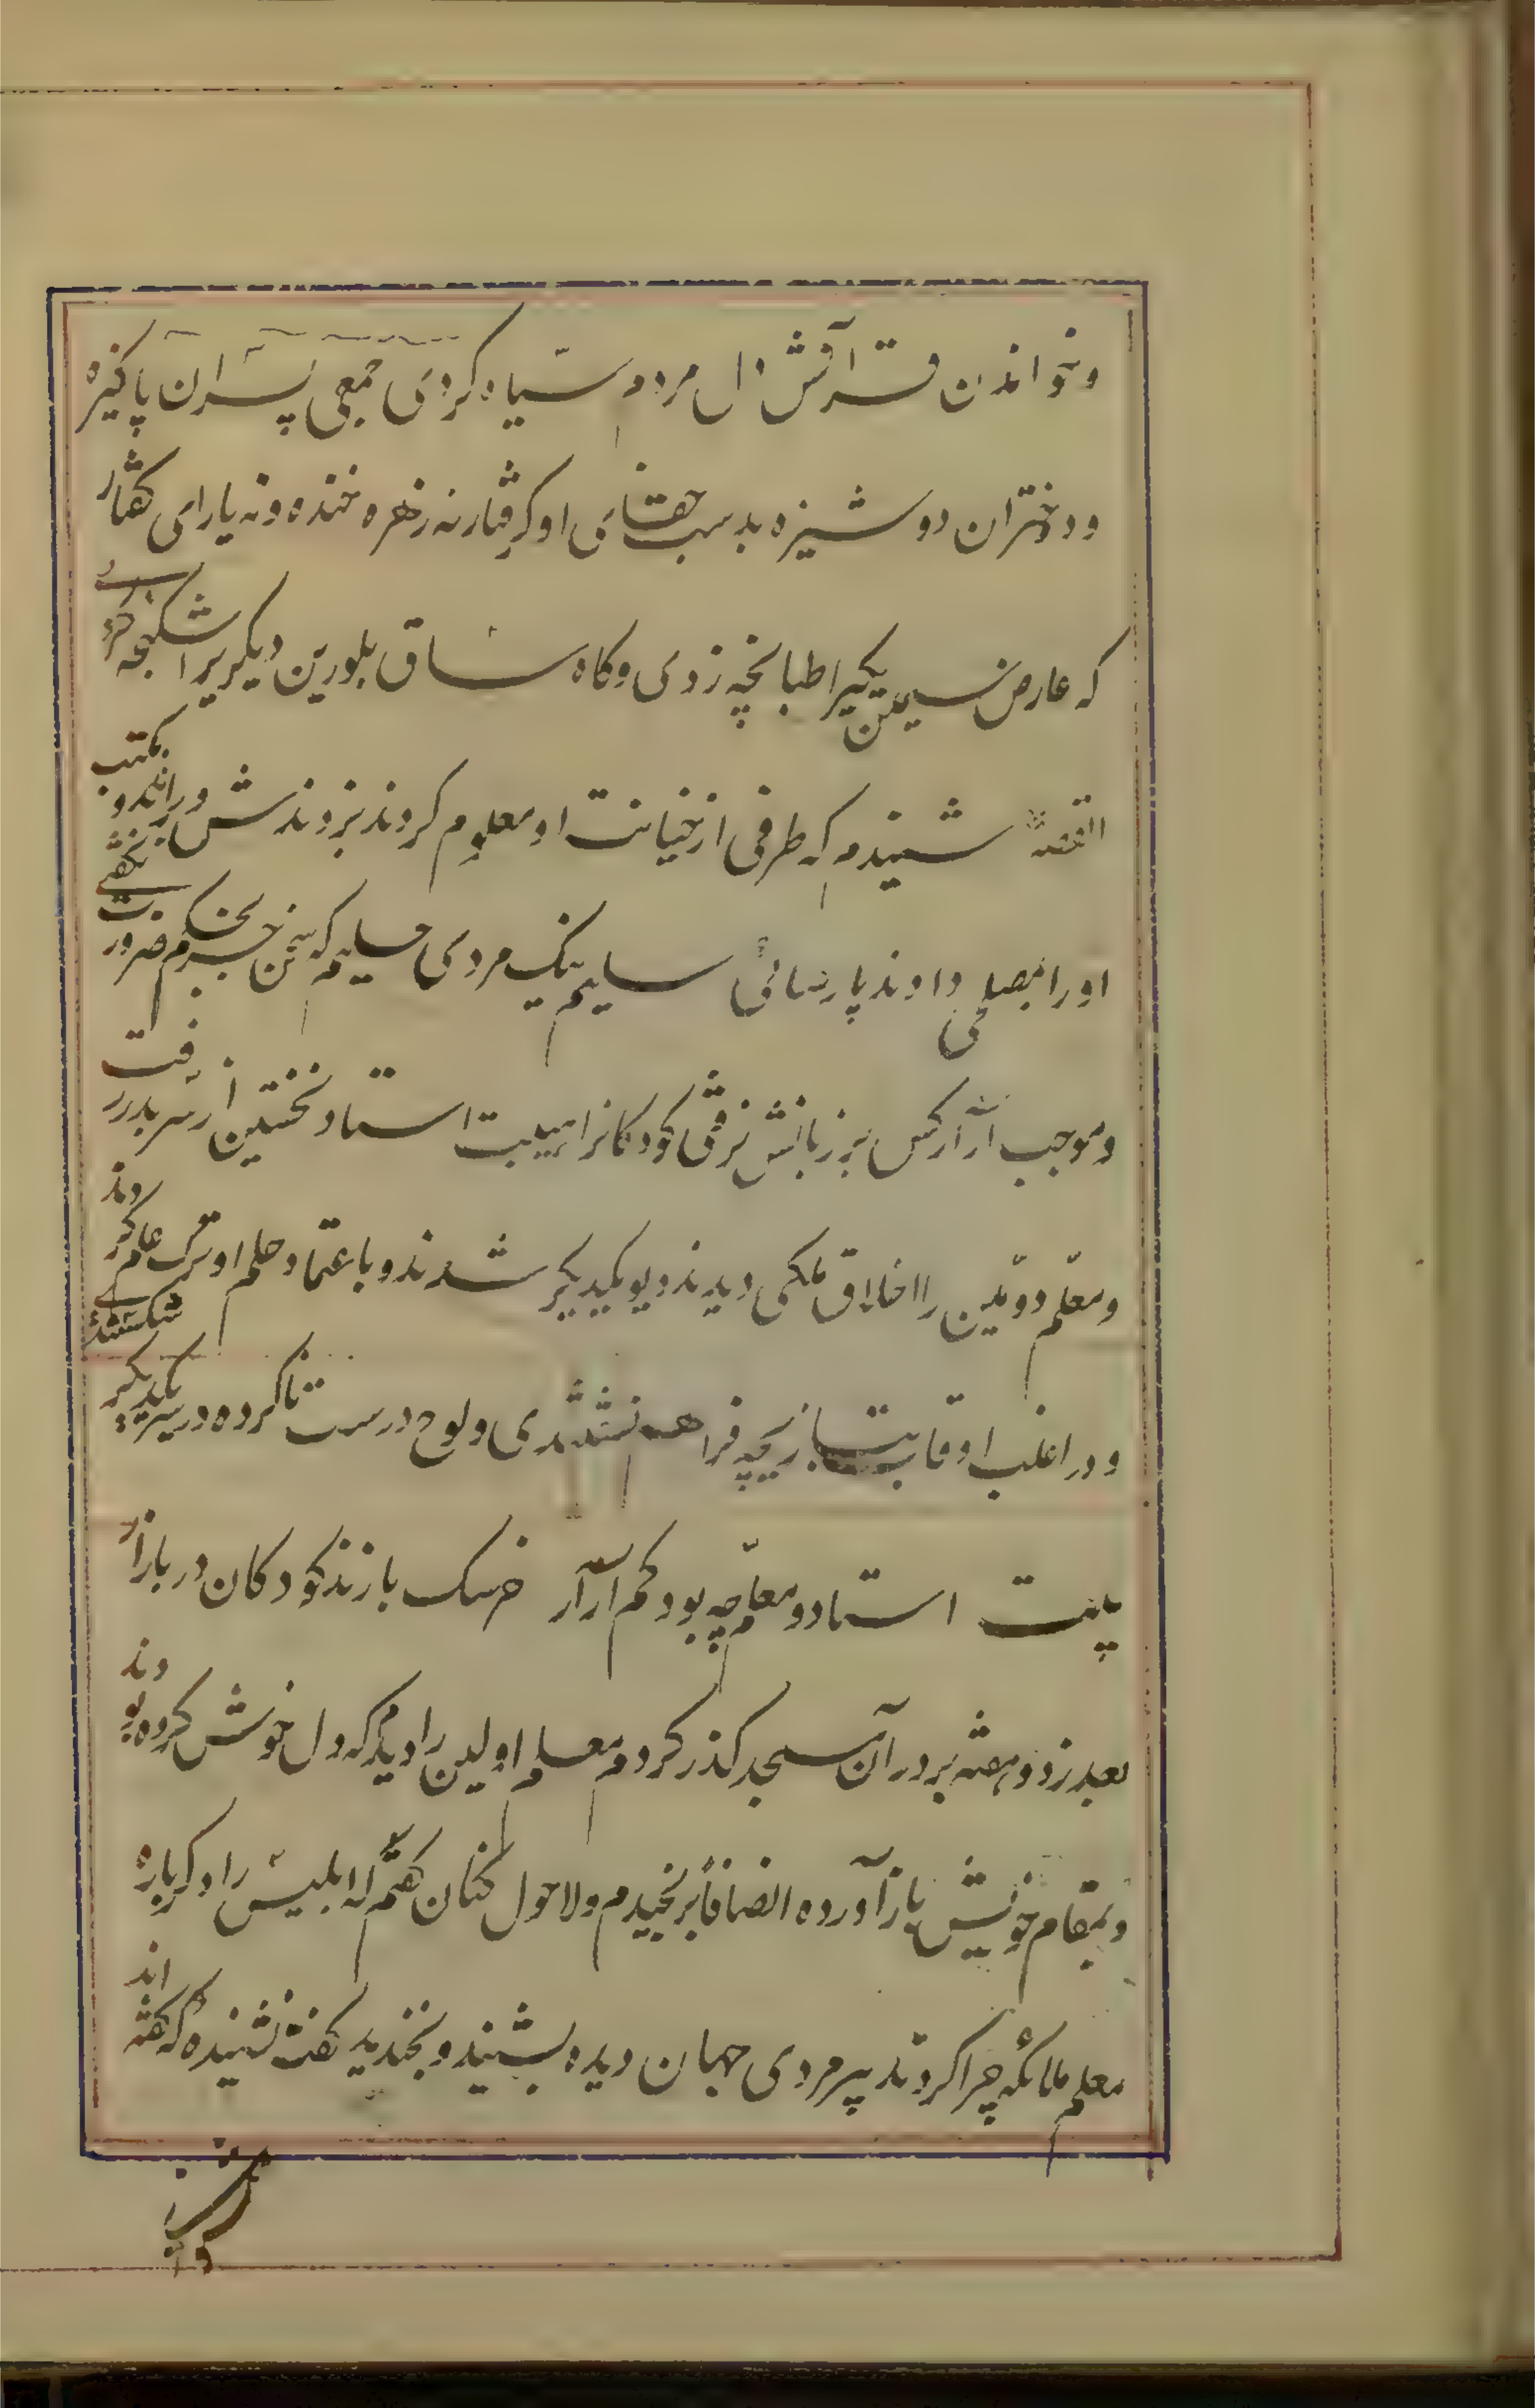 وخواندن قرآنش دل مردم سیاه کردی جمعی پسران پاکیزه
ودختران دوشیزه بدست جفای او گرفتار نه زهره خنده ونه یارای گفتار
که عارض سیمین یکیرا طبانچه زدی وکاه ساق بلورین دیکریرا شکنجه کردی
القصه شنیدم که طرفی از خیانت او معلوم کردند بزدندش وبراندند و مکتب
اورا بمصلحی دادند پارسائی سلیم نیک مردی حلیم که سخن جز بحکم ضرورت نگفتی
وموجب آزار کس بر زبانش نرفتی کودکانرا هیبت استاد نخستین از سر بدر رفت
ومعلم دومین را اخلاق ملکی دیدند دیو یکدیگر شدند وباعتماد حلم او ترک علم کردند
ودر اغلب اوقات ببازیچه فراهم نشستندی ولوح درست ناکرده در سر یکدیگر شکستندی
بیت استاد ومعلم چه بود کم آزار خرسک بازند کودکان در بازار
بعد از دو هفته بر در آن مسجد گذر کردم معلم اولین را دیدم که دل خوش کرده بودند
وبمقام خویش باز آورده انصافا برنجیدم ولاحول کنان گفتم که ابلیس را دگرباره
معلم ملائکه چرا کردند پیر مردی جهان دیده بشنید وبخندید گفت نشنیده که گفته اند